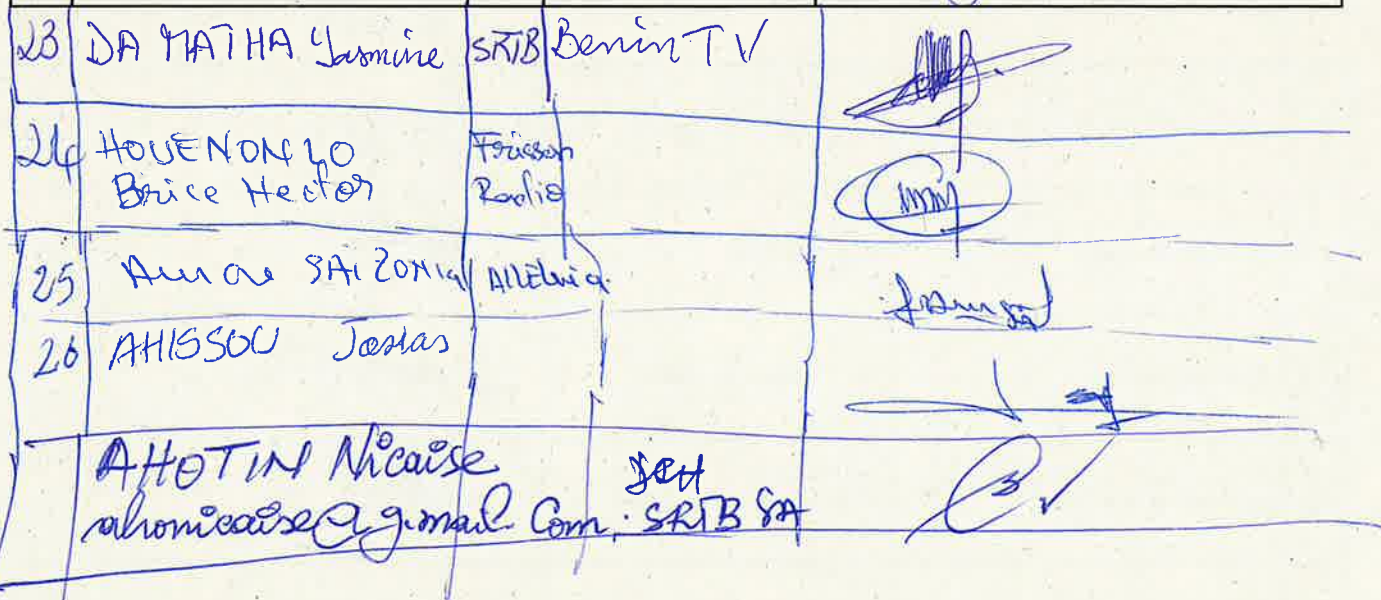 23 DA MATHA Yasmine SRTB Benin TV
24 HOUENONLO Frisson
Brice Hector Radio
25 SAIZONU ALLELuia
26 AHISSOU Jostas
AHOTIN Nicaise
ahonicaise@gmail.Com. SRTB SA